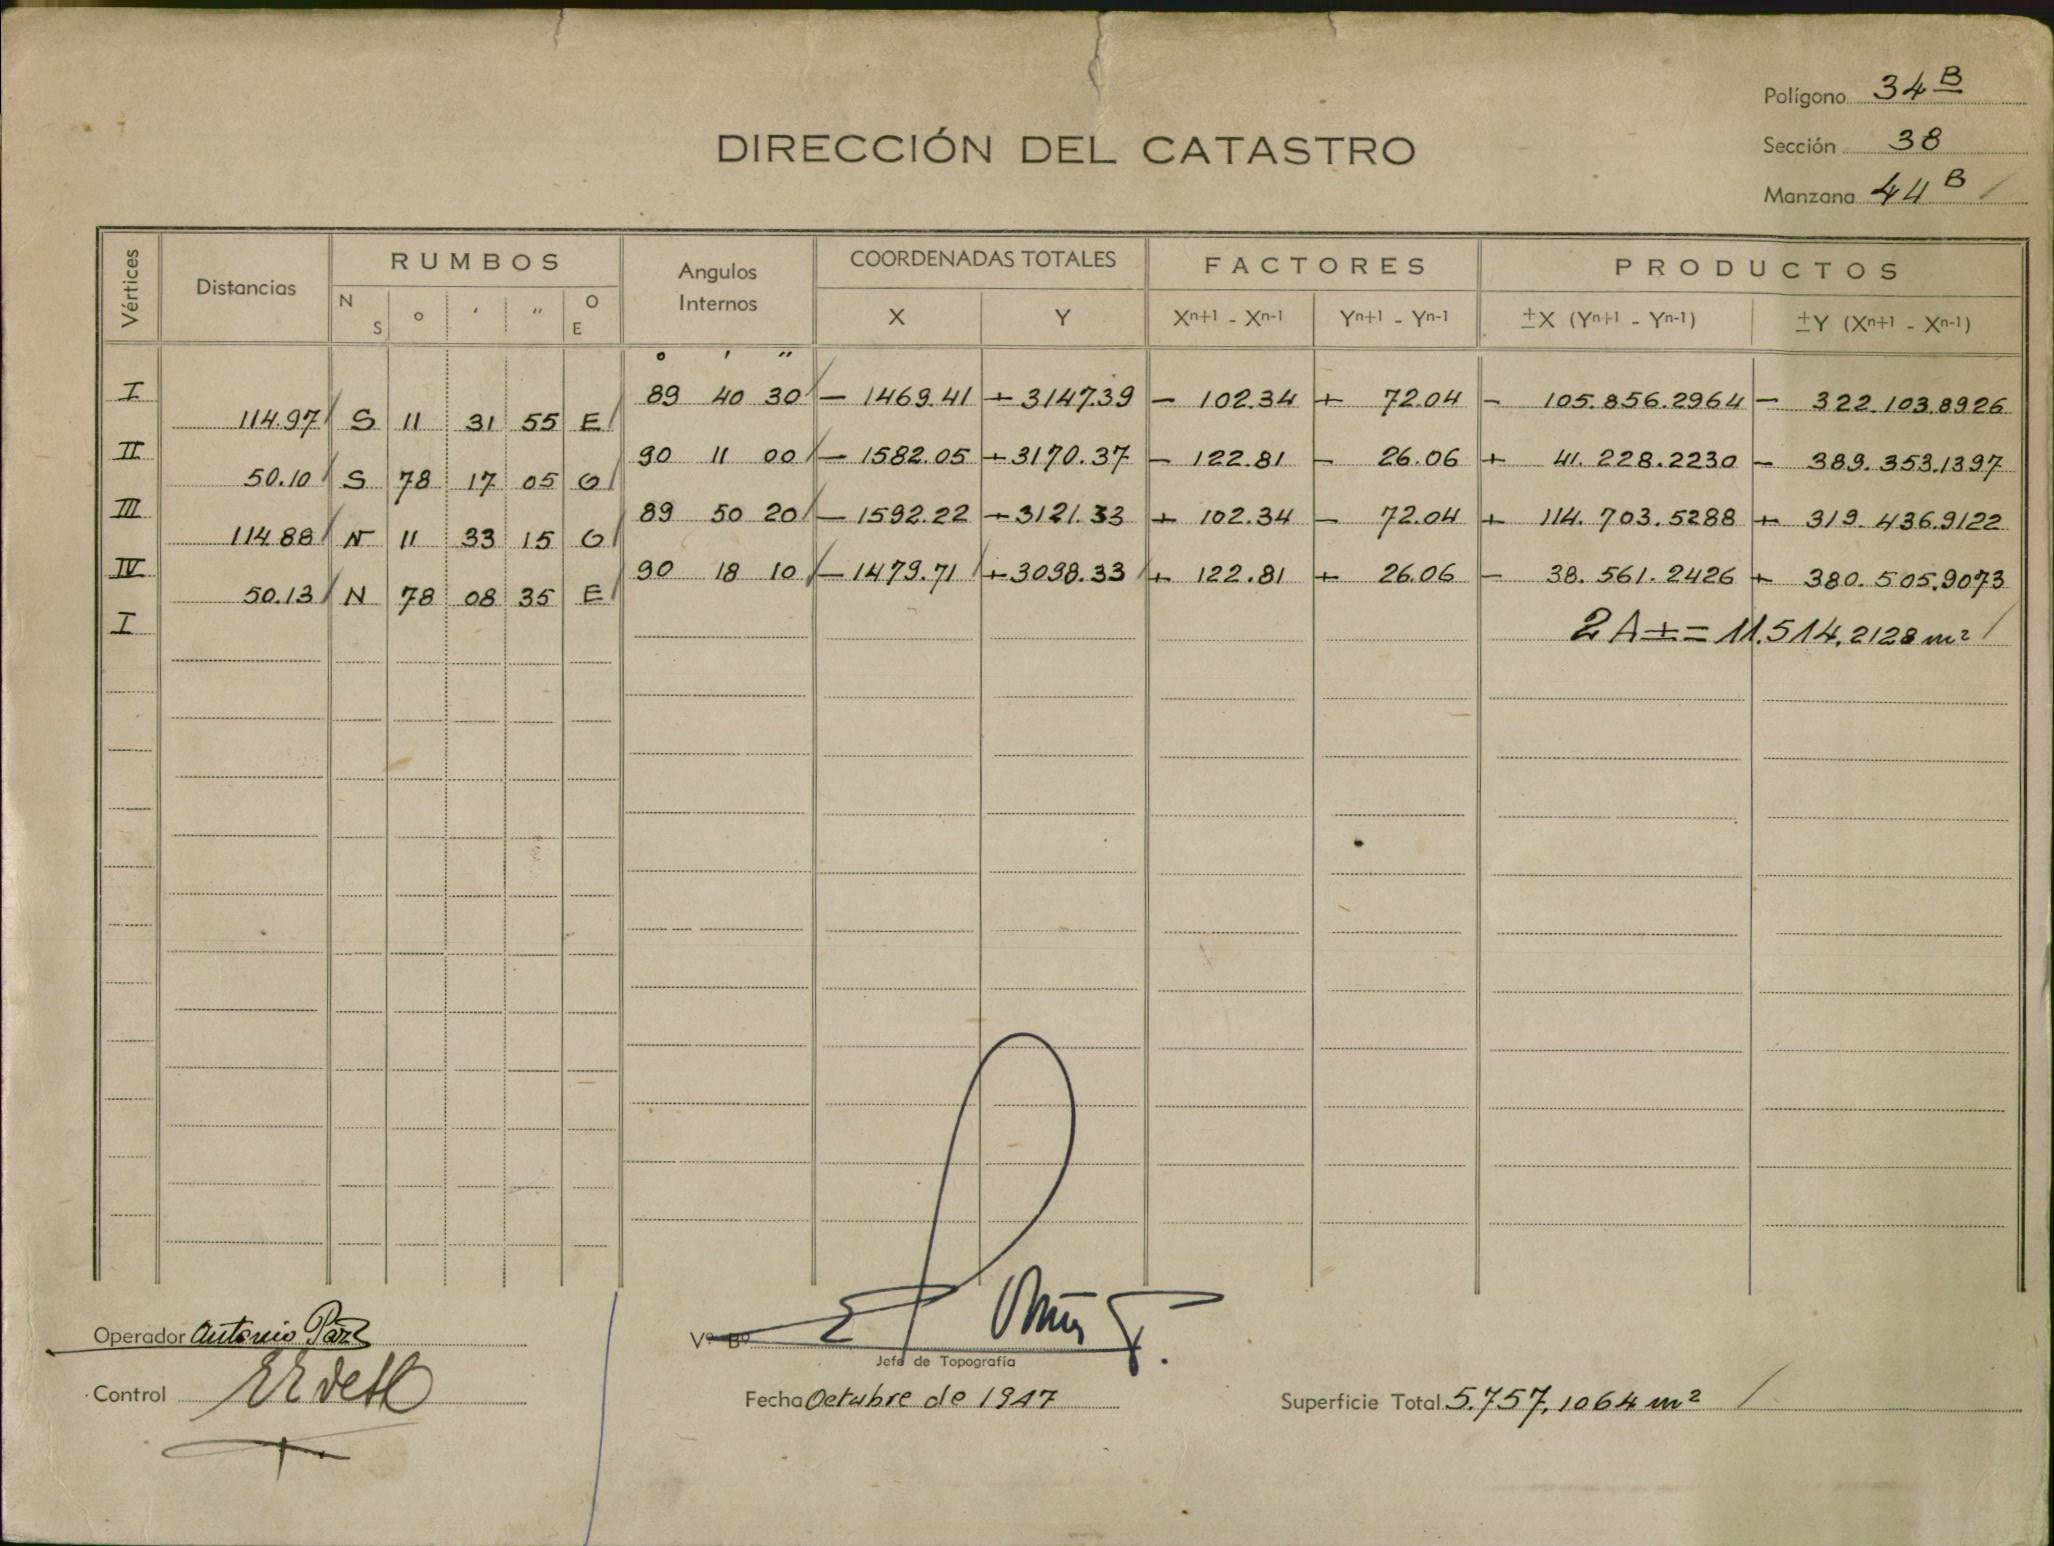 Polígono 34 B
DIRECCIÓN DEL CATASTRO
Sección 38
Manzana 44 B /
Vértices Distancias RUMBOS Angulos Internos COORDENADAS TOTALES FACTORES PRODUCTOS
N S ° ′ ″ O E X Y Xn+1 - Xn-1 Yn+1 - Yn-1 ±X (Yn+1 - Yn-1) ±Y (Xn+1 - Xn-1)
° ′ ″
I 89 40 30 / − 1469.41 + 3147.39 − 102.34 + 72.04 − 105.856.2964 − 322.103.8926
114.97 / S 11 31 55 E /
II 90 11 00 / − 1582.05 + 3170.37 − 122.81 − 26.06 + 41.228.2230 − 389.353.1397
50.10 / S 78 17 05 O /
III 89 50 20 / − 1592.22 + 3121.33 + 102.34 − 72.04 + 114.703.5288 + 319.436.9122
114.88 / N 11 33 15 O /
IV 90 18 10 / − 1479.71 / + 3098.33 / + 122.81 + 26.06 − 38.561.2426 + 380.505.9073
50.13 / N 78 08 35 E /
I 2 A ± = 11.514,2128 m² /
Operador Antonio Paz
Vº Bº
Jefe de Topografía
Control
Fecha Octubre de 1947
Superficie Total 5.757,1064 m² /